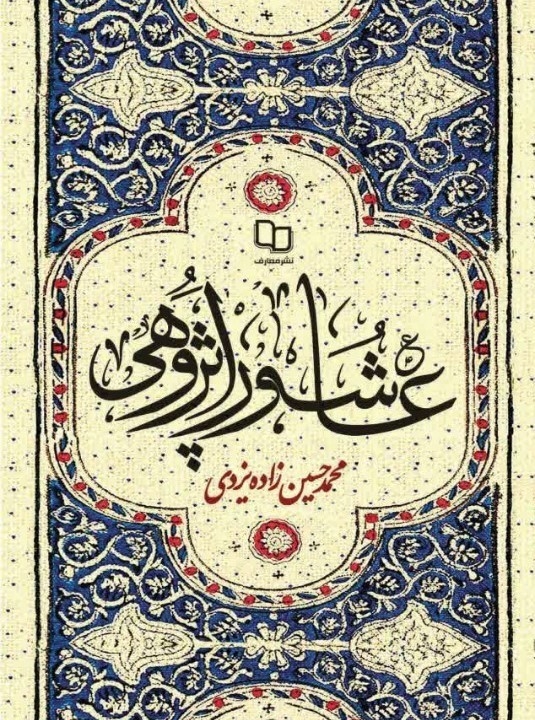 نشر معارف
عاشوراپژوهی
محمد حسین زاده یزدی